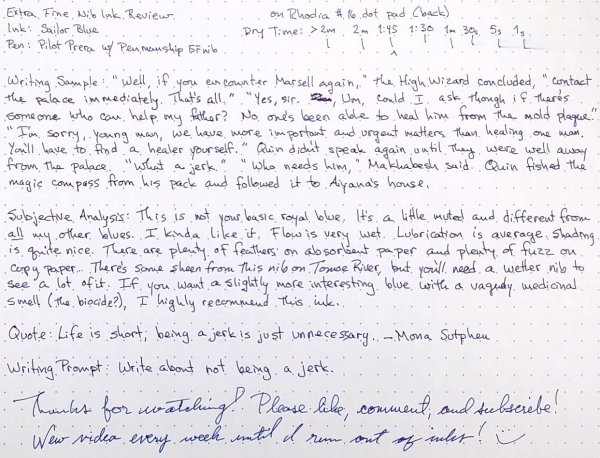 Extra Fine Nib Ink Review on Rhodia #16 dot pad (back)
Ink: Sailor Blue Dry Time: >2m 2m 1:45 1:30 1m 30s 5s 1s
Pen: Pilot Prera w/ Penmanship EF nib
Writing Sample: "Well, if you encounter Marsell again," the High Wizard concluded, "contact
the palace immediately. That's all." "Yes, sir. Um, could I ask though if there's
someone who can help my father? No one's been able to heal him from the mold plague."
"I'm sorry, young man, we have more important and urgent matters than healing one man.
You'll have to find a healer yourself." Quin didn't speak again until they were well away
from the palace. "What a jerk." "Who needs him," Makhabesh said. Quin fished the
magic compass from his pack and followed it to Aiyana's house.
Subjective Analysis: This is not your basic royal blue. It's a little muted and different from
all my other blues. I kinda like it. Flow is very wet. Lubrication is average. Shading
is quite nice. There are plenty of feathers on absorbent paper and plenty of fuzz on
copy paper... There's some sheen from this nib on Tomoe River, but you'll need a wetter nib to
see a lot of it. If you want a slightly more interesting blue with a vaguely medicinal
smell (the biocide?), I highly recommend this ink.
Quote: Life is short; being a jerk is just unnecessary. —Mona Sutphen
Writing Prompt: Write about not being a jerk.
Thanks for watching! Please like, comment, and subscribe!
New video every week until I run out of inks!